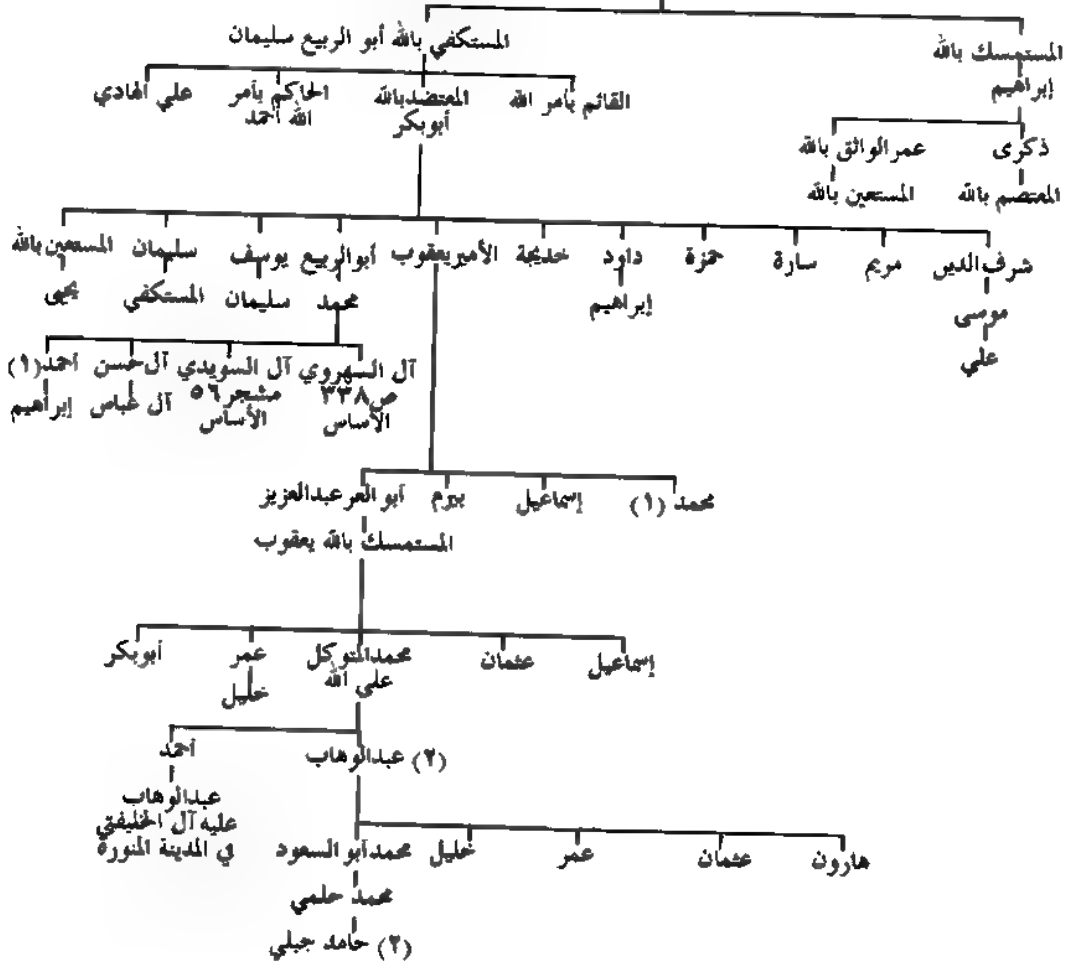 المستكفي بالله أبو الربيع سليمان
المستمسك بالله
إبراهيم
القائم بأمر الله
المعتضدبالله
أبوبكر
الحاكم بأمر
الله أحمد
علي الهادي
ذكرى
عمرالواثق بالله
المعتصم بالله
المستعين بالله
شرف الدين
مريم
سارة
حمزة
داود
خديجة
الأميريعقوب
أبوالربيع
يوسف
سليمان
المستعين بالله
موسى
علي
إبراهيم
محمد
سليمان
المستكفي
يحيى
آل السهروي
ص٣٣٨
الأساس
آل السويدي
مشجر٥٦
الأساس
آل حسن
آل عباس
أحمد (١)
إبراهيم
محمد (١)
إسماعيل
بيرم
أبو العر عبدالعزيز
المستمسك بالله يعقوب
إسماعيل
عثمان
محمدالمتوكل
على الله
عمر
خليل
أبوبكر
(٢) عبدالوهاب
أحمد
عبدالوهاب
عليه آل الخليفتي
في المدينة المنورة
هارون
عثمان
عمر
خليل
محمدأبو السعود
محمد حلمي
(٢) حامد جبلي